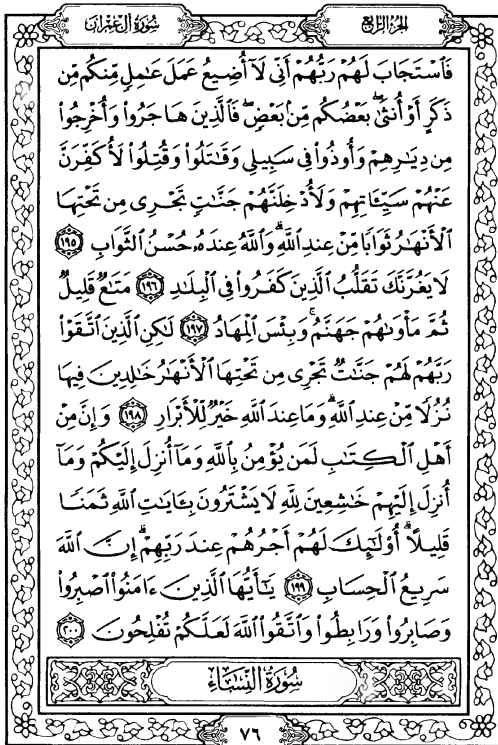 سُورَةُ آلِ عِمْرَان
الجُزْءُ الرَّابِعُ
فَٱسْتَجَابَ لَهُمْ رَبُّهُمْ أَنِّى لَآ أُضِيعُ عَمَلَ عَٰمِلٍ مِّنكُم مِّن
ذَكَرٍ أَوْ أُنثَىٰ ۖ بَعْضُكُم مِّنۢ بَعْضٍ ۖ فَٱلَّذِينَ هَاجَرُوا۟ وَأُخْرِجُوا۟
مِن دِيَٰرِهِمْ وَأُوذُوا۟ فِى سَبِيلِى وَقَٰتَلُوا۟ وَقُتِلُوا۟ لَأُكَفِّرَنَّ
عَنْهُمْ سَيِّـَٔاتِهِمْ وَلَأُدْخِلَنَّهُمْ جَنَّٰتٍ تَجْرِى مِن تَحْتِهَا
ٱلْأَنْهَٰرُ ثَوَابًا مِّنْ عِندِ ٱللَّهِ ۗ وَٱللَّهُ عِندَهُۥ حُسْنُ ٱلثَّوَابِ ١٩٥
لَا يَغُرَّنَّكَ تَقَلُّبُ ٱلَّذِينَ كَفَرُوا۟ فِى ٱلْبِلَٰدِ ١٩٦ مَتَٰعٌ قَلِيلٌ
ثُمَّ مَأْوَىٰهُمْ جَهَنَّمُ ۚ وَبِئْسَ ٱلْمِهَادُ ١٩٧ لَٰكِنِ ٱلَّذِينَ ٱتَّقَوْا۟
رَبَّهُمْ لَهُمْ جَنَّٰتٌ تَجْرِى مِن تَحْتِهَا ٱلْأَنْهَٰرُ خَٰلِدِينَ فِيهَا
نُزُلًا مِّنْ عِندِ ٱللَّهِ ۗ وَمَا عِندَ ٱللَّهِ خَيْرٌ لِّلْأَبْرَارِ ١٩٨ وَإِنَّ مِنْ
أَهْلِ ٱلْكِتَٰبِ لَمَن يُؤْمِنُ بِٱللَّهِ وَمَآ أُنزِلَ إِلَيْكُمْ وَمَآ
أُنزِلَ إِلَيْهِمْ خَٰشِعِينَ لِلَّهِ لَا يَشْتَرُونَ بِـَٔايَٰتِ ٱللَّهِ ثَمَنًا
قَلِيلًا ۗ أُو۟لَٰٓئِكَ لَهُمْ أَجْرُهُمْ عِندَ رَبِّهِمْ ۗ إِنَّ ٱللَّهَ
سَرِيعُ ٱلْحِسَابِ ١٩٩ يَٰٓأَيُّهَا ٱلَّذِينَ ءَامَنُوا۟ ٱصْبِرُوا۟
وَصَابِرُوا۟ وَرَابِطُوا۟ وَٱتَّقُوا۟ ٱللَّهَ لَعَلَّكُمْ تُفْلِحُونَ ٢٠٠
سُورَةُ النِّسَاءِ
٧٦